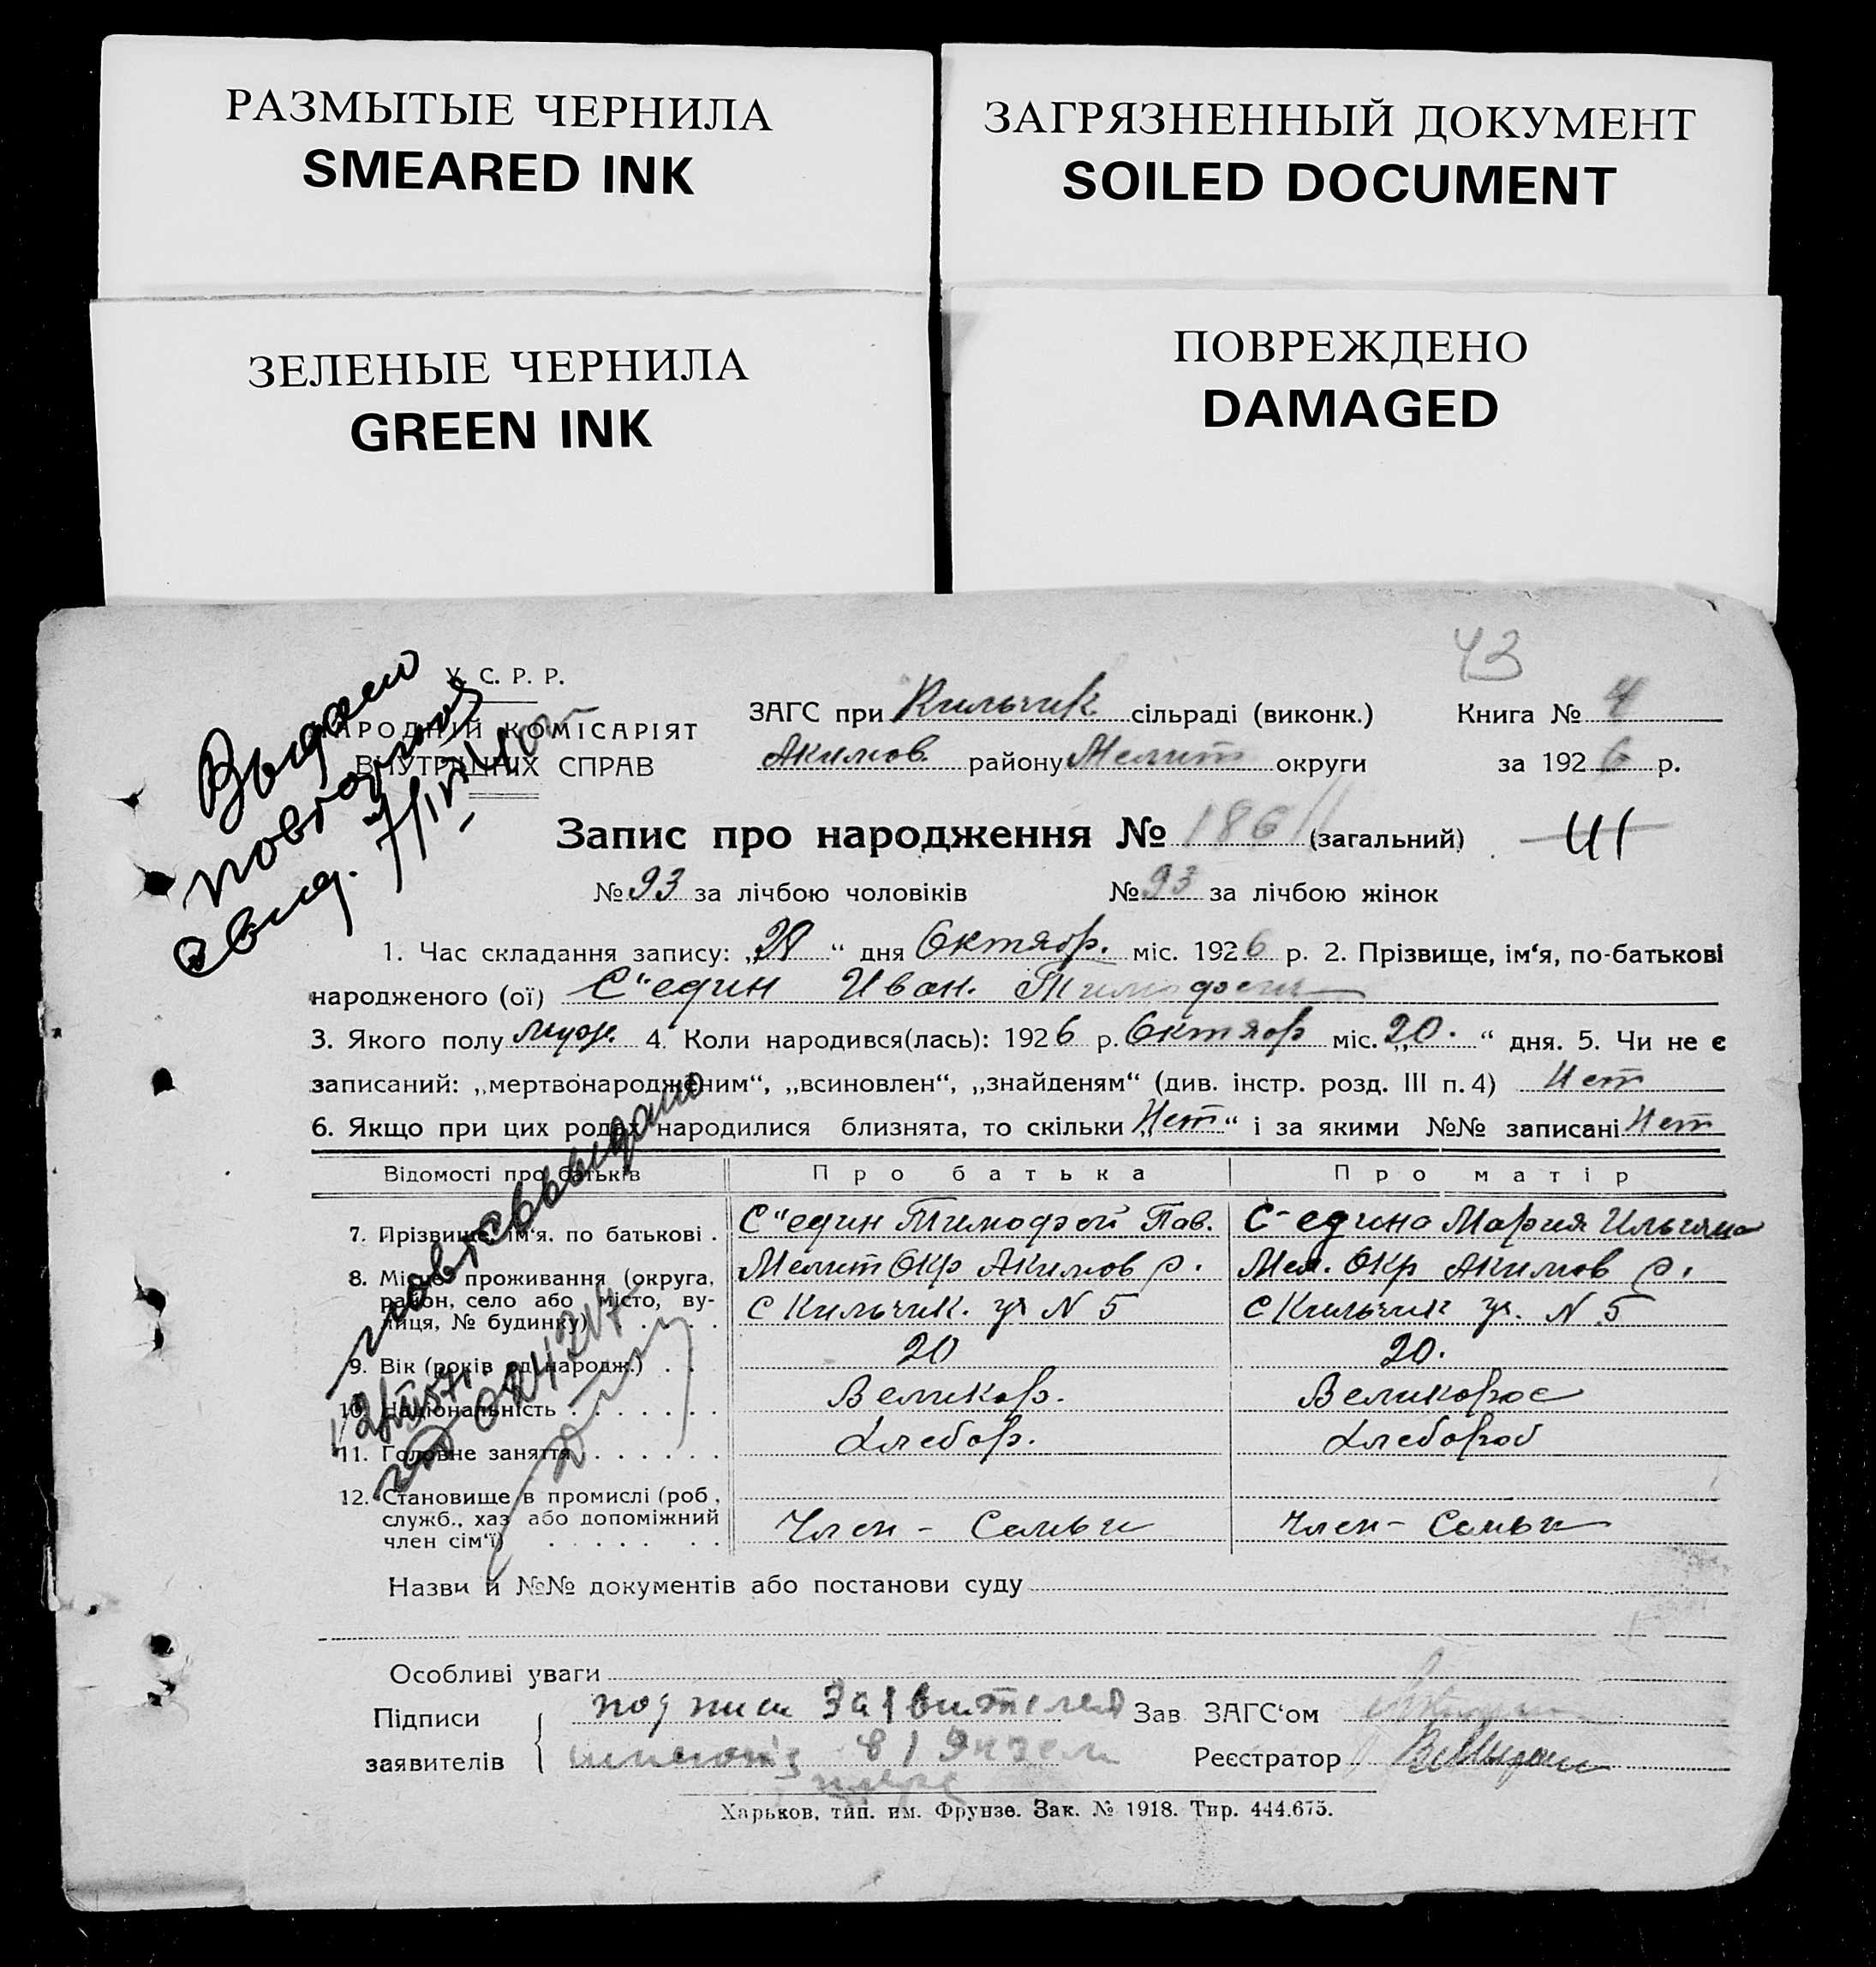 РАЗМЫТЫЕ ЧЕРНИЛА
SMEARED INK
ЗАГРЯЗНЕННЫЙ ДОКУМЕНТ
SOILED DOCUMENT
ЗЕЛЕНЫЕ ЧЕРНИЛА
GREEN INK
ПОВРЕЖДЕНО
DAMAGED
43
У. С. Р. Р.
НАРОДНІЙ КОМІСАРІЯТ
ВНУТРІШНІХ СПРАВ
Выдано
повторное
свид.
ЗАГС при Кильчик сільраді (виконк.) Книга № 4
Акимов. району Мелит округи за 1926 р.
Запис про народження № 186 (загальний)
№ 93 за лічбою чоловіків № 93 за лічбою жінок
1. Час складання запису: „ “ дня Октябр. міс. 1926 р. 2. Прізвище, ім‘я, по-батькові
народженого (ої) С"един Иван. Тимофееви
3. Якого полу муж. 4. Коли народився(лась): 1926 р. Октябр міс. „20.“ дня. 5. Чи не є
записаний: „мертвонародженим“, „всиновлен“, „знайденям“ (див. інстр. розд. III п. 4) Нет
6. Якщо при цих родах народилися близнята, то скільки „Нет“ і за якими №№ записані Нет
Відомості про батьків Про батька Про матір
7. Прізвище, ім‘я, по батькові . С"един Тимофей Пав. С-едина Мария Ильинина
8. Місце проживання (округа, район, село або місто, вулиця, № будинку) Мелит Окр Акимов р. Мел. Окр Акимов р.
С Кильчик. уч N 5 С Кильчик уч. N 5
9. Вік (років од народж.) . . 20 20.
10. Національність . . . . . . Великор. Великорос
11. Головне заняття . . . . . . Хлебор. Хлебороб
12. Становище в промислі (роб., служб., хаз. або допоміжний член сім‘ї) Член - Семьи Член - Семьи
повт св выдано
Назви й №№ документів або постанови суду
Особливі уваги
Підписи заявителів подписи Заявителей Зав ЗАГС‘ом
Реєстратор
Харьков, тип. им. Фрунзе. Зак. № 1918. Тир. 444.675.